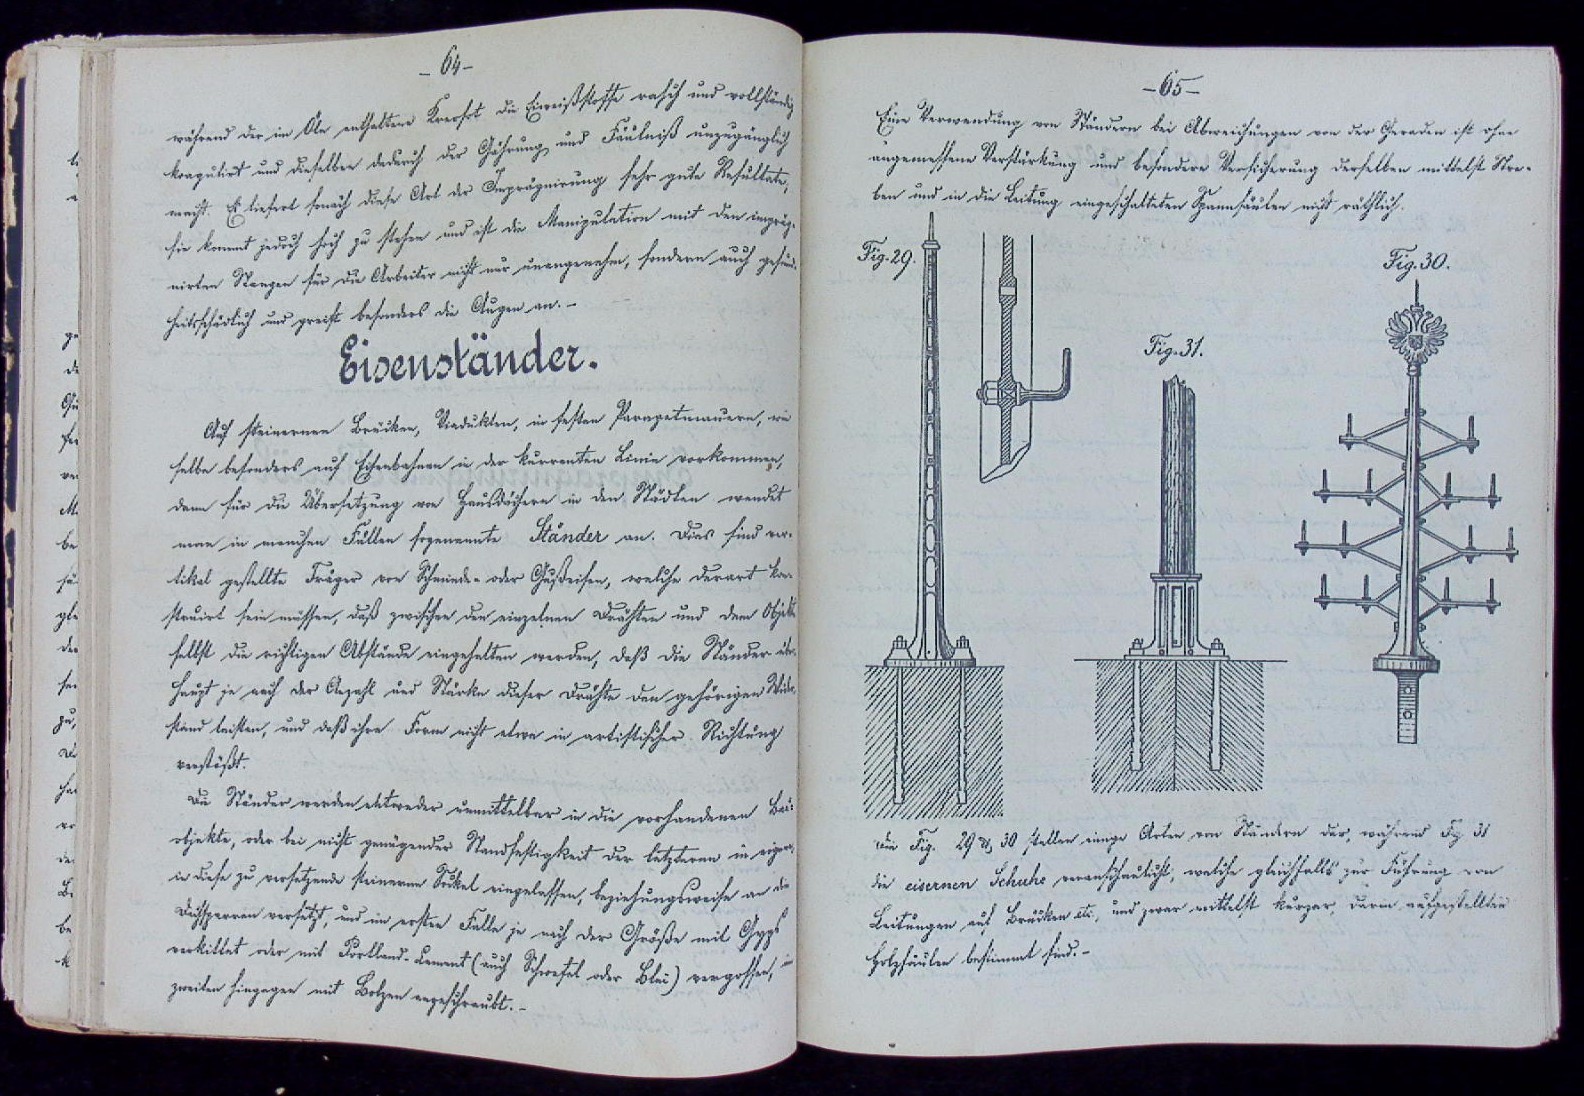 - 64 -
während der im Öle enthaltene Kreosot die Eiweißstoffe rasch und vollständig
koagulirt und dieselben dadurch der Gährung und Fäulniß unzugänglich
macht. Es liefert sonach diese Art der Imprägnirung sehr gute Resultate,
sie kommt jedoch hoch zu stehen und ist die Manipulation mit den impräg-
nirten Stangen für die Arbeiter nicht nur unangenehm, sondern auch gesund-
heitsschädlich und greift besonders die Augen an. -
Eisenständer.
Auf steinernen Brücken, Viadukten, in festen Parapetmauern, wie
selbe besonders auf Eisenbahnen in der kurrenten Linie vorkommen,
dann für die Übersetzung von Hausdächern in den Städten wendet
man in manchen Fällen sogenannte Ständer an. Dies sind ver-
tikal gestellte Träger von Schmiede- oder Gußeisen, welche derart kon-
struirt sein müssen, daß zwischen den einzelnen Drähten und dem Objekte
selbst die richtigen Abstände eingehalten werden, daß die Ständer über-
haupt je nach der Anzahl und Stärke dieser Drähte den gehörigen Wider-
stand leisten, und daß ihre Form nicht etwa in artistischer Richtung
verstößt.
Die Ständer werden entweder unmittelbar in die vorhandenen Bau-
objekte, oder bei nicht genügender Standfestigkeit der letzteren in eigene,
in diese zu versetzende steinerne Sockel eingelassen, beziehungsweise an die
Dachsparren versetzt, und im ersten Falle je nach der Größe mit Gyps
verkittet oder mit Portland-Cement (auch Schwefel oder Blei) vergossen, im
zweiten hingegen mit Bolzen angeschraubt. -
- 65 -
Eine Verwendung von Ständern bei Abweichungen von der Geraden ist ohne
angemessene Verstärkung und besondere Versicherung derselben mittelst Stre-
ben und in die Leitung eingeschalteten Spannsäulen nicht räthlich.
Fig. 29.
Fig. 30.
Fig. 31.
Die Fig. 29 u. 30 stellen einige Arten von Ständern dar, während Fig. 31
die eisernen Schuhe veranschaulicht, welche gleichfalls zur Führung von
Leitungen auf Brücken etc, und zwar mittelst kurzer, darin aufgestellter
Holzsäulen bestimmt sind. -